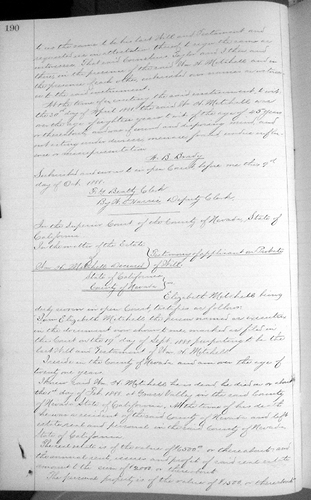 190
to us the same to be his last Will and Testament and
requested us in attestation thereof to sign the same as
witnesses. That said
in the presence of the said Wm H Mitchell and in
the presence of each other subscribe our names as witness
to the said instrument.
At the time of executing the said instrument, to wit
the 20th day of April 1881, the said Wm H Mitchell was
over the age of eighteen years to wit of the age of 55 years
or thereabouts, and was of sound and disposing mind, and
not acting under duress, menace, fraud, undue influ-
ence or misrepresentation
A. B. Brady
Subscribed and sworn to in open Court before me this 9th
day of Oct. 1881.
Beatty Clerk
By Deputy Clerk
In the Superior Court of the County of Nevada State of
California
In the matter of the Estate
of
Wm H Mitchell Deceased
Testimony of applicant on Probate
of Will
State of California
County of Nevada
Elizabeth Mitchell being
duly sworn in open Court, testifies as follows:
I am Elizabeth Mitchell the person named as executrix
in the document now shown to me, marked as filed in
this Court on the 17th day of Sept. 1881 purporting to be the
last Will and Testament of Wm H Mitchell
I reside in the County of Nevada and am over the age of
twenty one years
I knew said Wm H Mitchell, he is dead, he died on or about
the 1st day of Feb. 1881 at Grass Valley in the said County
of Nevada State of California. At the time of his death
he was a resident of the said County of Nevada and left
estate real and personal in the said County of Nevada
State of California.
The real estate is of the value of $1500 or thereabouts and
the annual rents, issues and profits of said real estate
amount to the sum of $200 or thereabout
The personal property is of the value of $1500 or thereabout